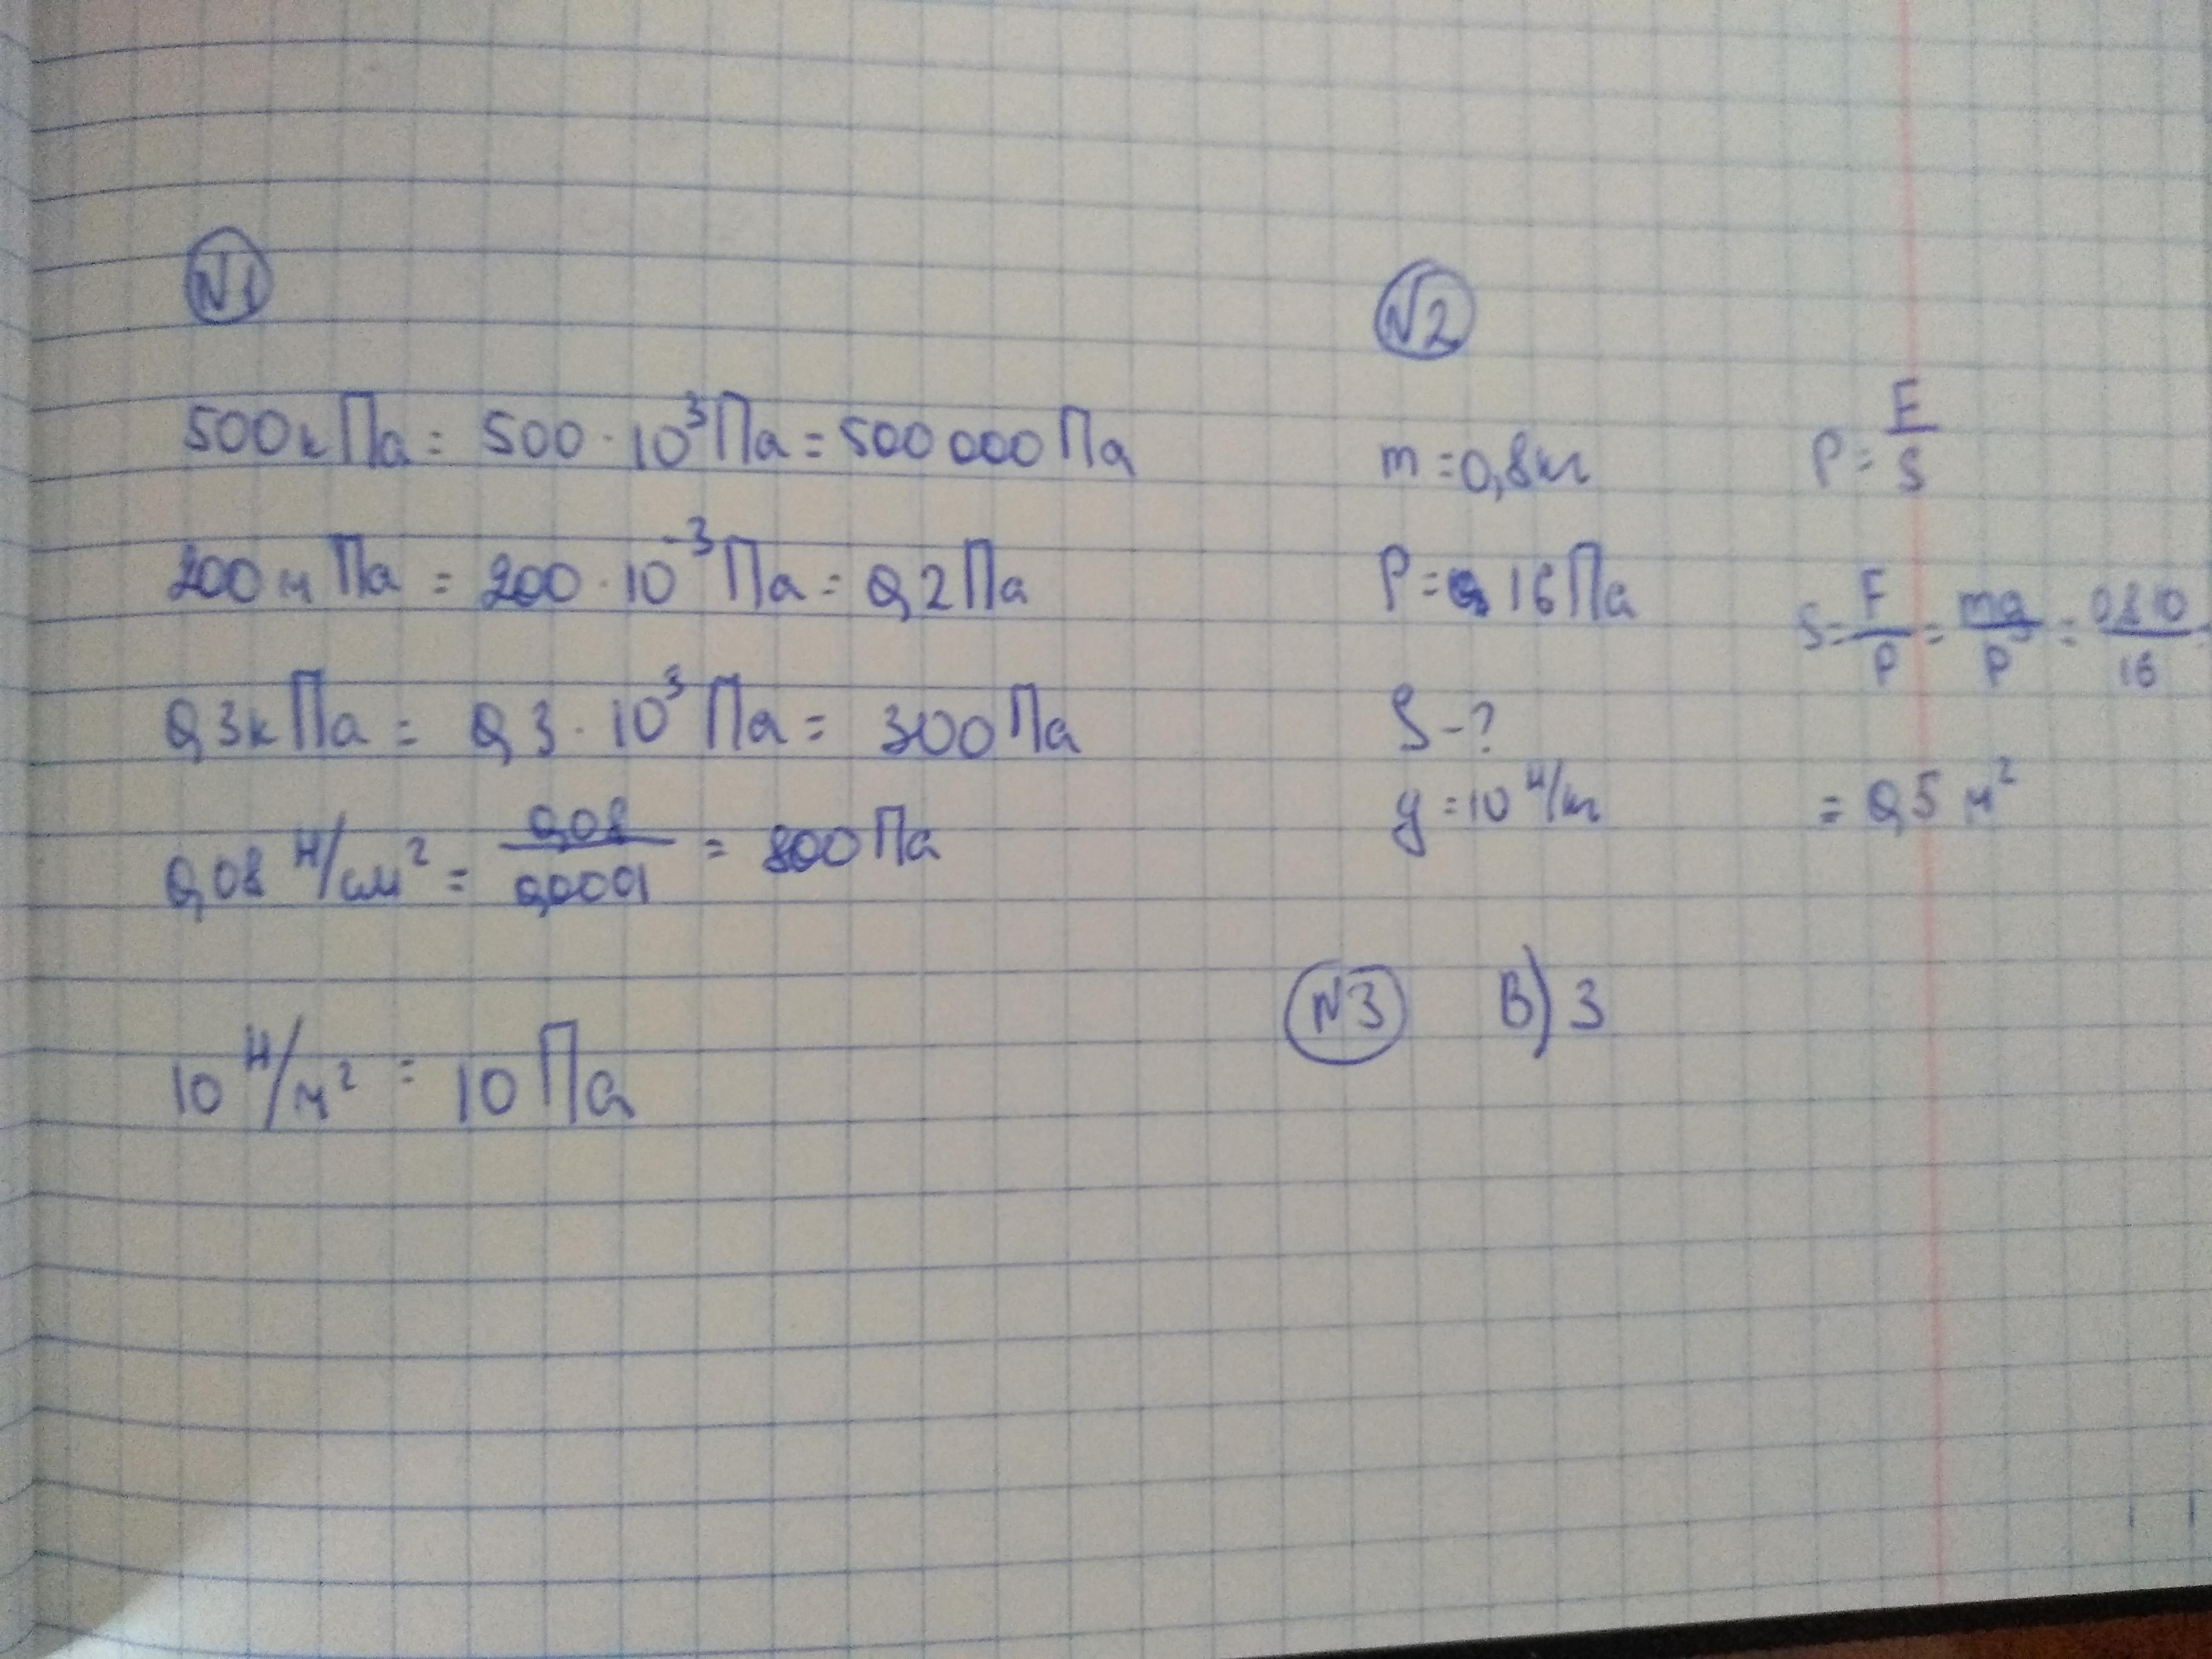 №1
500кПа = 500 · 10³ Па = 500 000 Па
200мПа = 200 · 10⁻³ Па = 0,2 Па
0,3кПа = 0,3 · 10³ Па = 300 Па
0,08 Н/см² = 0,08/0,0001 = 800 Па
10 Н/м² = 10 Па
№2
m = 0,8 кг
P = 16 Па
S - ?
g = 10 Н/кг
P = F/S
S = F/P = mg/P = 0,8·10/16 =
= 0,5 м²
№3 В) 3